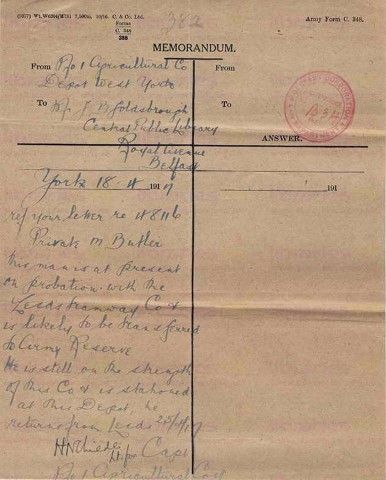 382
Army Form C. 348.
Forms
C. 348
MEMORANDUM.
From No 1 Agricultural Co
Depot West Yorks
To Mr J B Goldsbrough
Central Public Library
Royal Avenue
Belfast
From
To
ANSWER.
York 18 1917
191
ref your letter re 48116
Private M Butler
This man is at present
on probation with the
Leeds Tramway Co &
is likely to be transferred
to Army Reserve
He is still on the strength
of this Co & is stationed
at this Depot, he
returns from Leeds
Capt
No 1 Agricultural Co